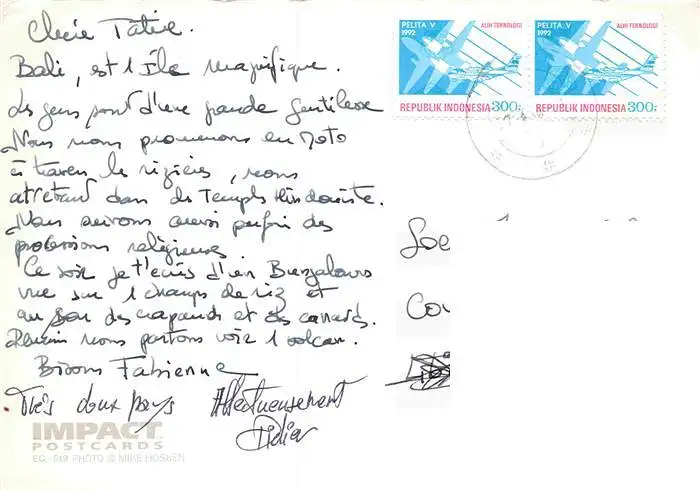 Chère Tatie.
Bali, est 1 Île magnifique.
Les gens sont d'une grande gentillesse
Nous nous promenons en Moto
à travers les rizières, nous
arretant dans des Temples Hindouiste.
Nous suivons aussi parfois des
processions religieuses.
Ce soir je t'écris d'un Bungalows
vue sur 1 champs de riz et
au son des crapauds et des canards.
Demain nous partons voir 1 volcan.
Bisous Fabienne
Très doux pays Affectueusement
Didier
IMPACT
POSTCARDS
EG. 519 PHOTO © MIKE HOSKEN
PELITA V
1992
ALIH TEKNOLOGI
REPUBLIK INDONESIA 300:
PELITA V
1992
ALIH TEKNOLOGI
REPUBLIK INDONESIA 300: